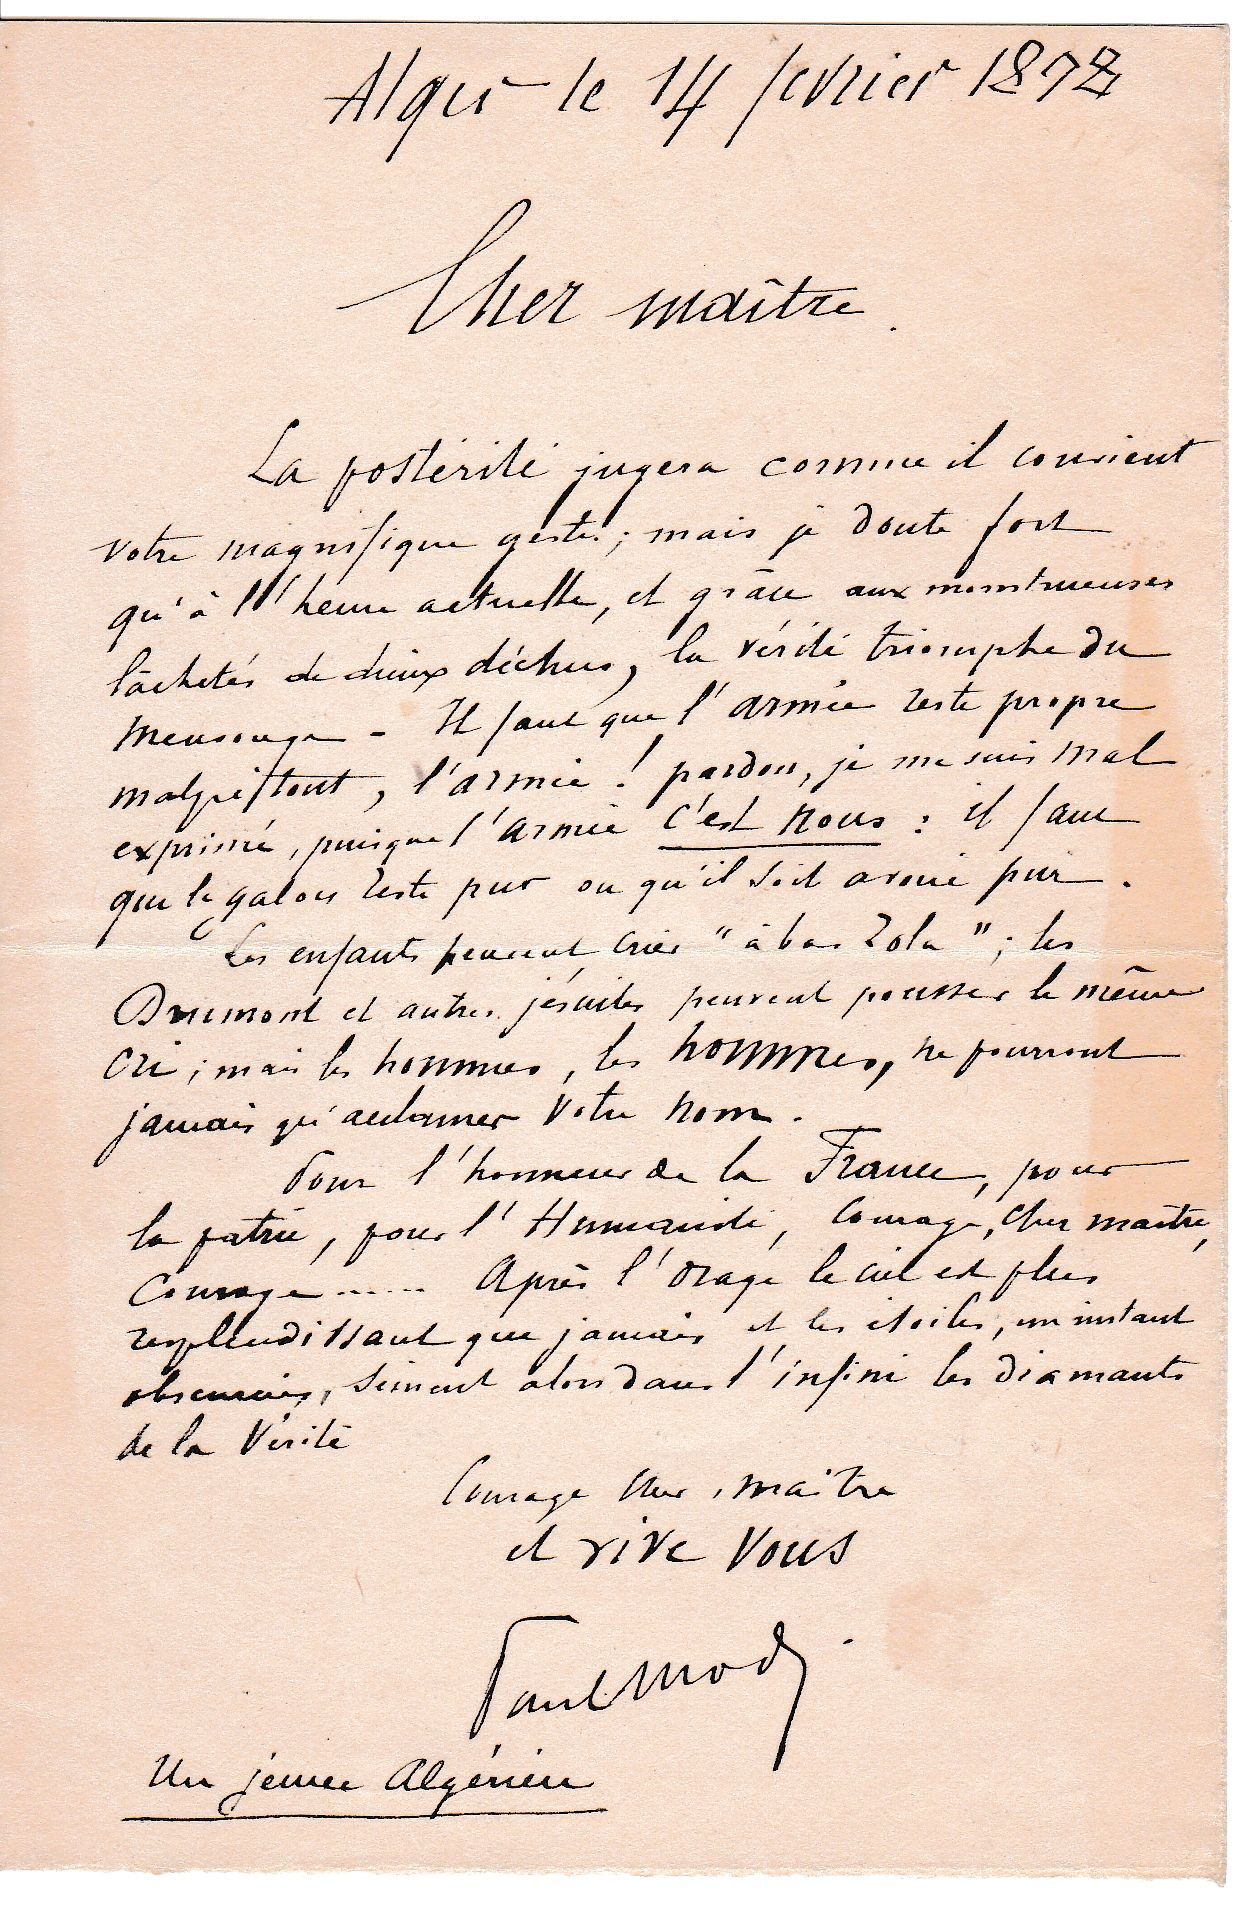 Alger le 14 février 1898
Cher maître.
La postérité jugera comme il convient
votre magnifique geste ; mais je doute fort
qu'à l'heure actuelle, et grâce aux monstrueuses
lâchetés de dieux déchus, la vérité triomphe du
mensonge - Il faut que l'armée reste propre
malgré tout, l'armée ! pardon, je me suis mal
exprimé, puisque l'armée c'est nous : il faut
que le galon reste pur ou qu'il soit avoué pur.
Les enfants peuvent crier "à bas Zola" ; les
Drumont et autres jésuites peuvent pousser le même
cri ; mais les hommes, les hommes, ne pourront
jamais qu'acclamer votre nom.
Pour l'honneur de la France, pour
la patrie, pour l'Humanité, courage, cher maître,
courage...... Après l'orage le ciel est plus
resplendissant que jamais et les étoiles, un instant
obscurcies, sèment alors dans l'infini les diamants
de la Vérité
Courage cher maître
et vive vous
Paul
Un jeune Algérien